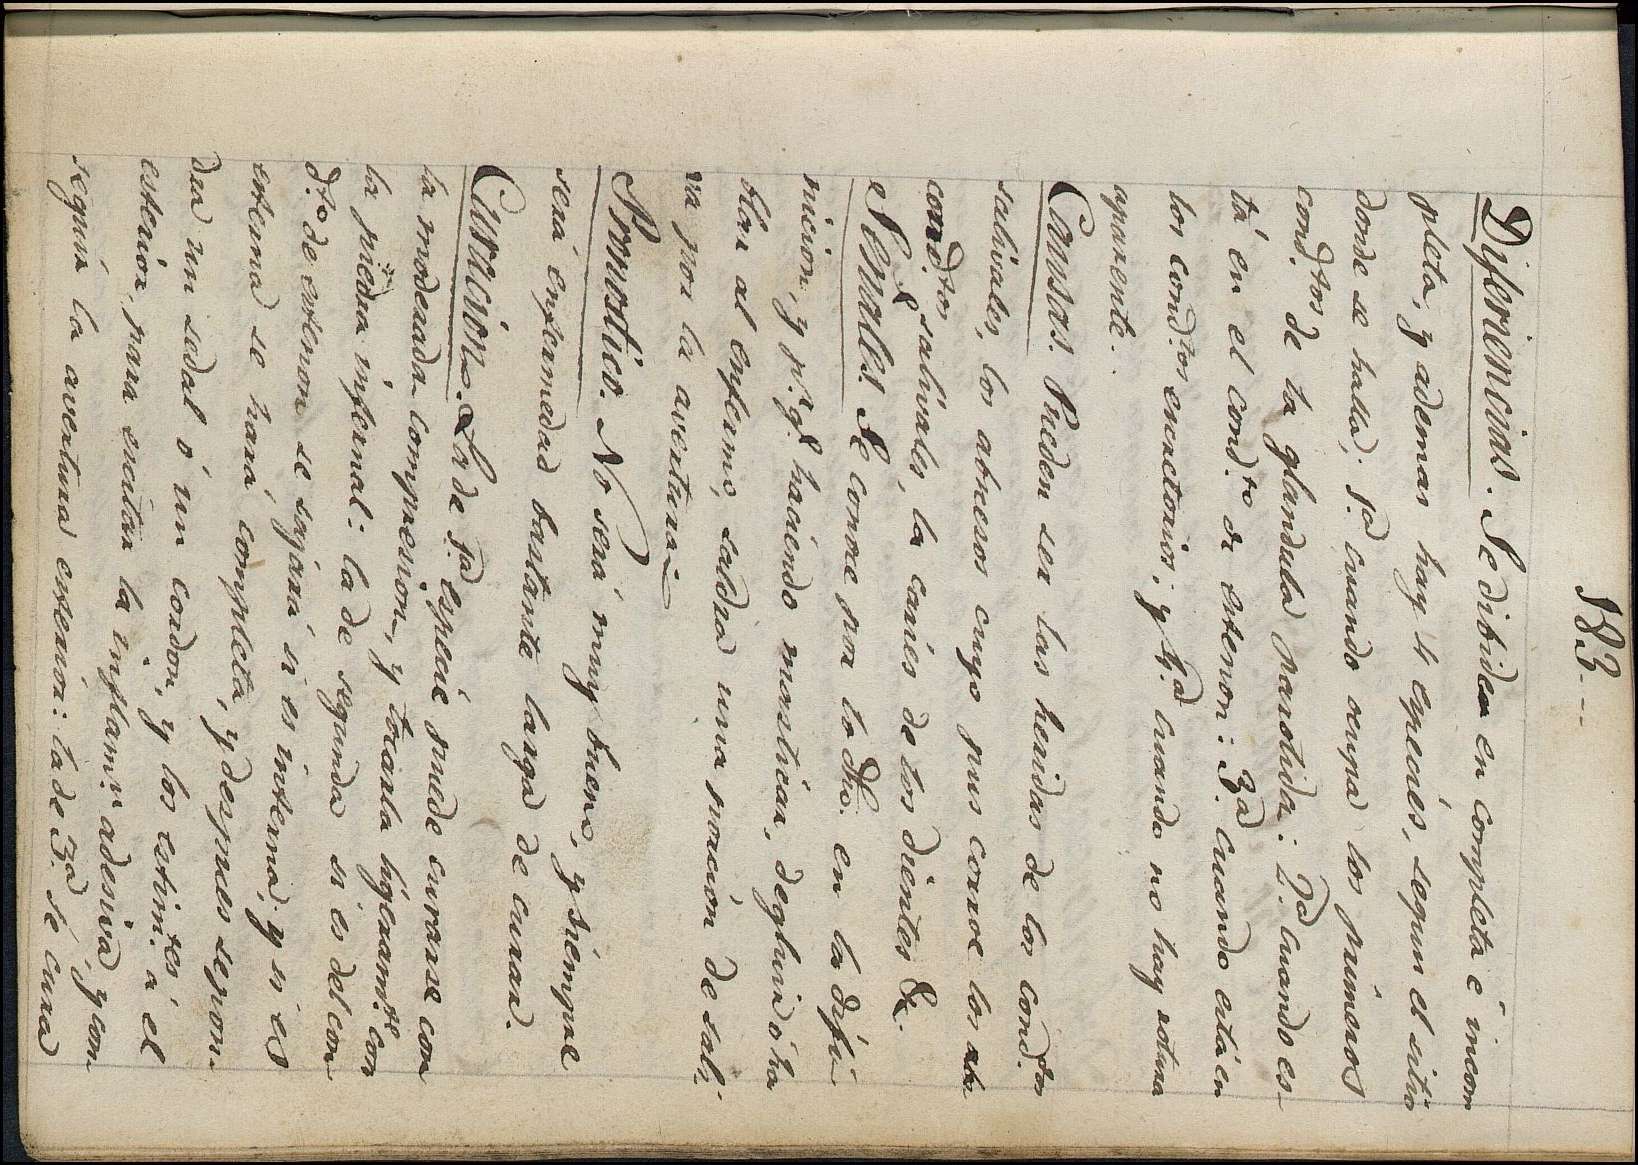 183--
Diferiencias. Se dibiden en completa é incom
pleta, y ademas hay 4 especies, segun el sitio
donde se halla; 1ª cuando ocupa los primeros
cond.tos de la glandula parotida: 2ª cuando es-
tá en el cond.to de estenon: 3ª cuando está en
los cond.tos escretorios; y 4ª cuando no hay rotura
aparente.
Causas. Pueden ser las heridas de los cond.tos
salivales, los abscesos cuyo pus corroe los
cond.tos salivales, la caries de los dientes &.
Señales. Se conoce por lo dho. en la difi-
nicion, y p.r q.e haciendo masticar, deglutir ó ha
blar al enfermo, saldra una porcion de sali-
va por la avertura=
Pronostico. No será muy bueno, y siempre
será enfermedad bastante larga de curar.
Curacion. La de 1ª especie puede curarse con
la moderada compresion, y tocarla ligeram.te con
la piedra infernal: la de segunda si es del con
d.to de estenon se sajará si es interna, y si es
esterna se hará completa, y despues se pon-
dra un sedal ó un cordon, y los estim.tes á el
esterior, para escitar la inflam.n adesiva, y con
seguir la avertura esterior: la de 3ª se cura